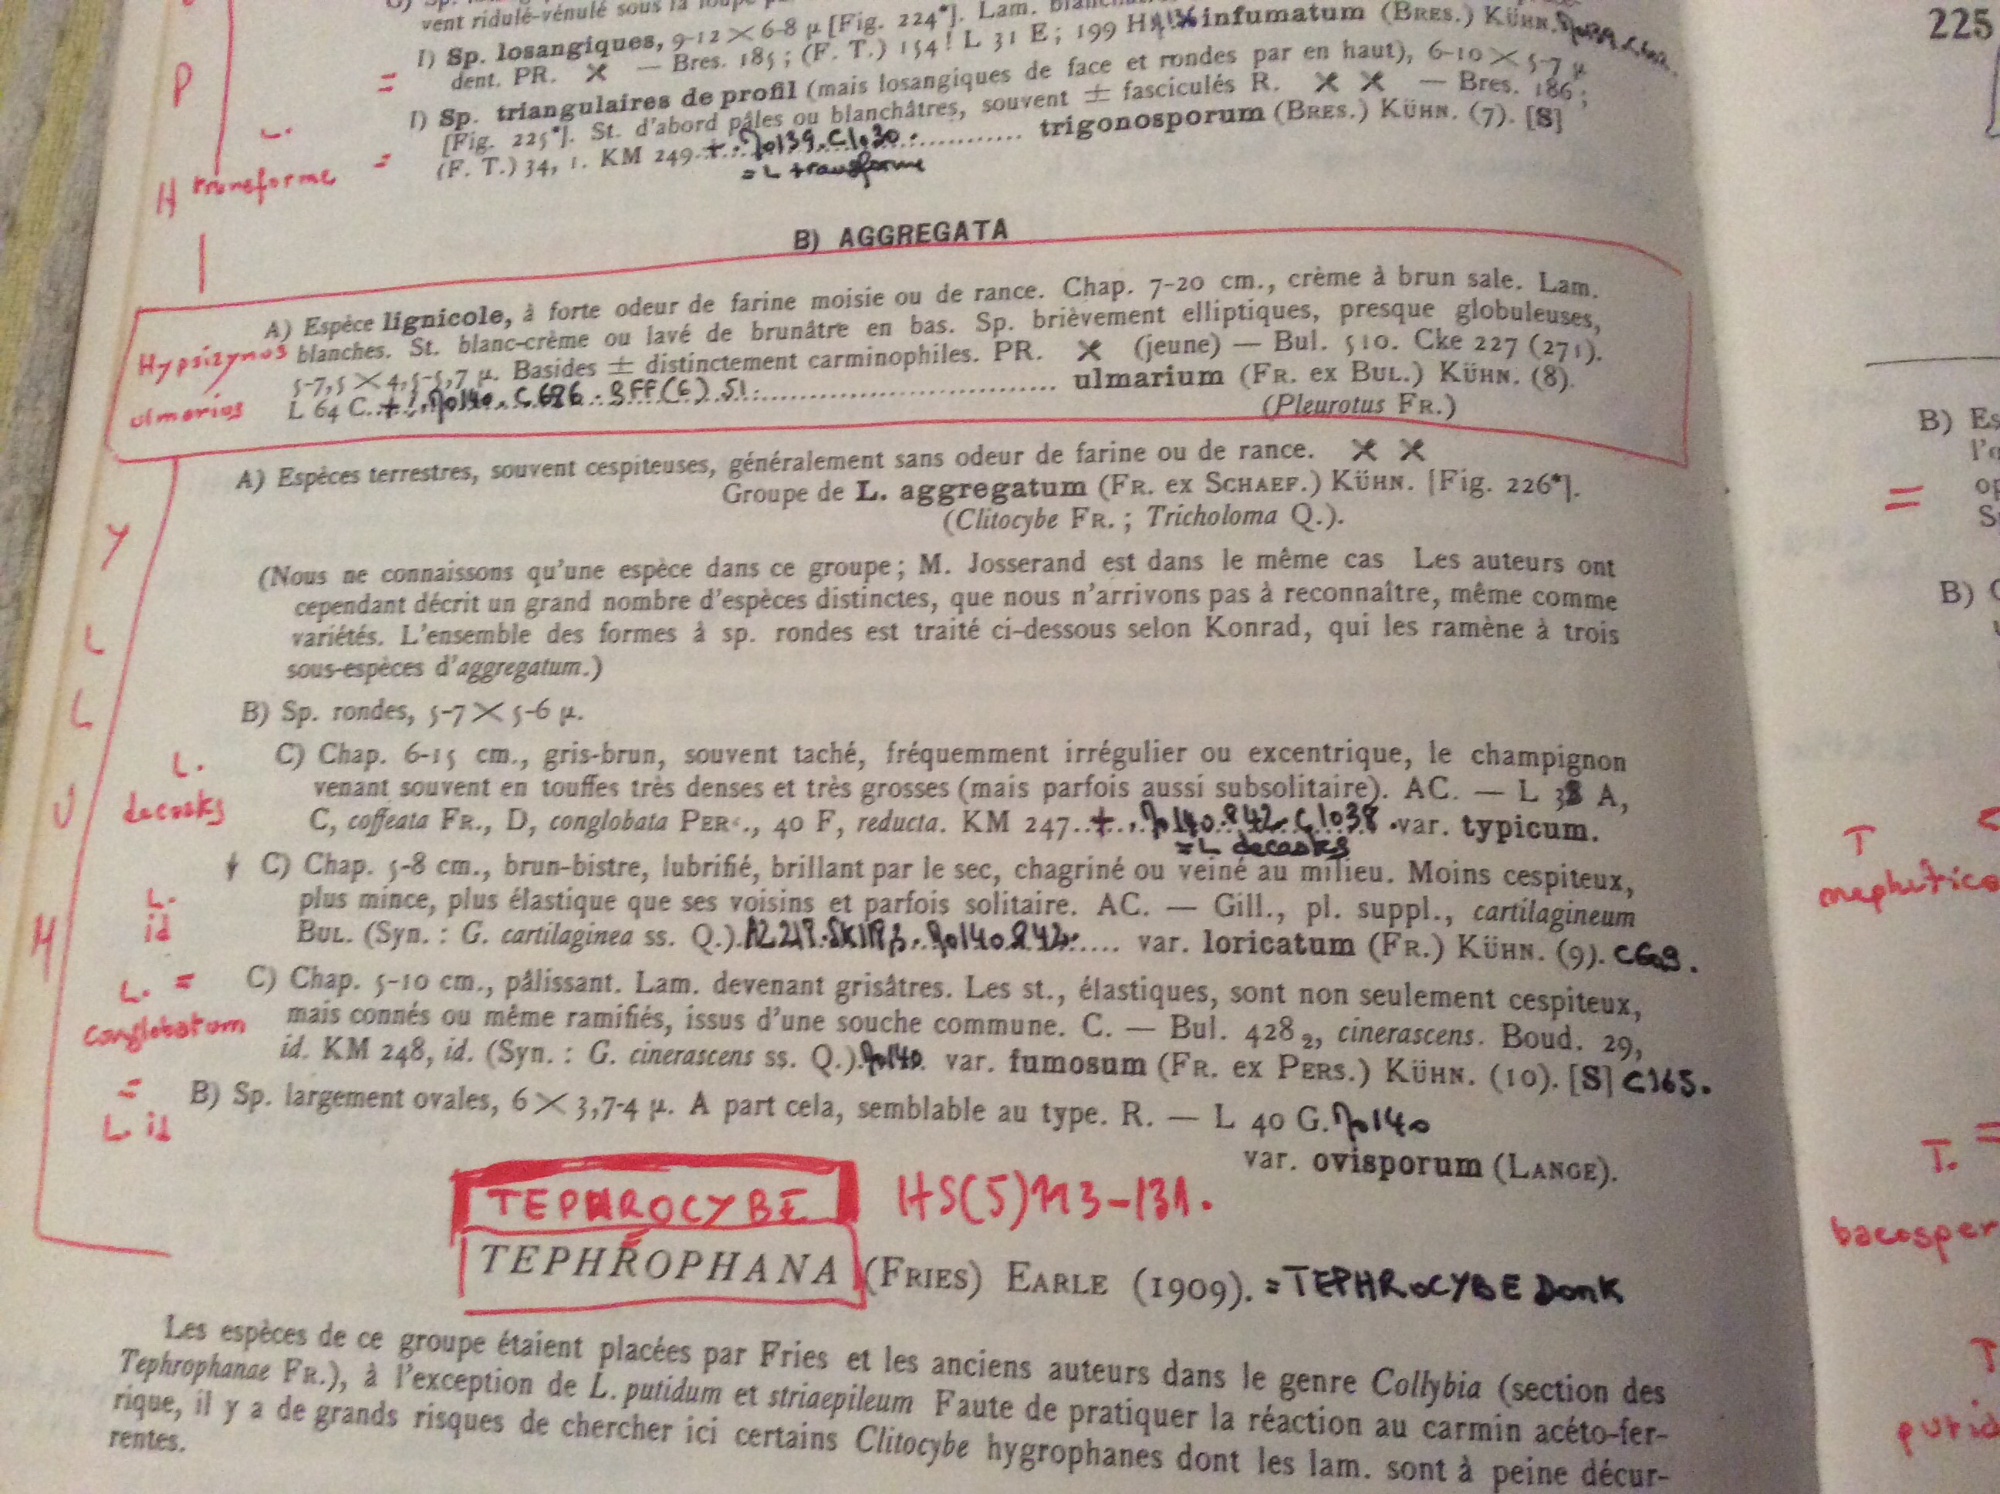 vent ridulé-vénulé sous la loupe
225
I) Sp. losangiques, 9-12 × 6-8 µ [Fig. 224*]. Lam.
dent. PR. × — Bres. 185 ; (F. T.) 154 ! L 31 E ; 199 H infumatum (BRES.) KÜHN.
I) Sp. triangulaires de profil (mais losangiques de face et rondes par en haut), 6-10 × 5-7 µ
[Fig. 225*]. St. d'abord pâles ou blanchâtres, souvent ± fasciculés R. × × — Bres. 186 ;
(F. T.) 34, 1. KM 249 + . Mo139. C1030. trigonosporum (BRES.) KÜHN. (7). [S]
= L transforme
P
L.
H transforme
=
=
B) AGGREGATA
A) Espèce lignicole, à forte odeur de farine moisie ou de rance. Chap. 7-20 cm., crème à brun sale. Lam.
blanches. St. blanc-crème ou lavé de brunâtre en bas. Sp. brièvement elliptiques, presque globuleuses,
5-7,5 × 4,5-5,7 µ. Basides ± distinctement carminophiles. PR. × (jeune) — Bul. 510. Cke 227 (271).
L 64 C. + ! . Mo140. C686. BFF(6) 51. ulmarium (FR. ex BUL.) KÜHN. (8).
(Pleurotus FR.)
Hypsizynos
ulmarius
A) Espèces terrestres, souvent cespiteuses, généralement sans odeur de farine ou de rance. × ×
Groupe de L. aggregatum (FR. ex SCHAEF.) KÜHN. [Fig. 226*].
(Clitocybe FR. ; Tricholoma Q.).
(Nous ne connaissons qu'une espèce dans ce groupe ; M. Josserand est dans le même cas Les auteurs ont
cependant décrit un grand nombre d'espèces distinctes, que nous n'arrivons pas à reconnaître, même comme
variétés. L'ensemble des formes à sp. rondes est traité ci-dessous selon Konrad, qui les ramène à trois
sous-espèces d'aggregatum.)
Y
L
L
U
M
B) Sp. rondes, 5-7 × 5-6 µ.
C) Chap. 6-15 cm., gris-brun, souvent taché, fréquemment irrégulier ou excentrique, le champignon
venant souvent en touffes très denses et très grosses (mais parfois aussi subsolitaire). AC. — L 38 A,
C, coffeata FR., D, conglobata PERS., 40 F, reducta. KM 247 + . Mo140.842. C1038. var. typicum.
= L decastes
L.
decastes
C) Chap. 5-8 cm., brun-bistre, lubrifié, brillant par le sec, chagriné ou veiné au milieu. Moins cespiteux,
plus mince, plus élastique que ses voisins et parfois solitaire. AC. — Gill., pl. suppl., cartilagineum
BUL. (Syn. : G. cartilaginea ss. Q.). Mo140.842. var. loricatum (FR.) KÜHN. (9). C609.
L.
id
C) Chap. 5-10 cm., pâlissant. Lam. devenant grisâtres. Les st., élastiques, sont non seulement cespiteux,
mais connés ou même ramifiés, issus d'une souche commune. C. — Bul. 428 2, cinerascens. Boud. 29,
id. KM 248, id. (Syn. : G. cinerascens ss. Q.). Mo140. var. fumosum (FR. ex PERS.) KÜHN. (10). [S] C165.
L. =
conglobatum
B) Sp. largement ovales, 6 × 3,7-4 µ. A part cela, semblable au type. R. — L 40 G. Mo140
var. ovisporum (LANGE).
=
L. id
TEPHROCYBE HS(5)113-131.
=
TEPHROPHANA (FRIES) EARLE (1909). = TEPHROCYBE DonK
Les espèces de ce groupe étaient placées par Fries et les anciens auteurs dans le genre Collybia (section des
Tephrophanae FR.), à l'exception de L. putidum et striaepileum Faute de pratiquer la réaction au carmin acéto-fer-
rique, il y a de grands risques de chercher ici certains Clitocybe hygrophanes dont les lam. sont à peine décur-
rentes.
B) Es
l'o
= op
B) C
T
mephitico
T. =
bacosper
T
putid